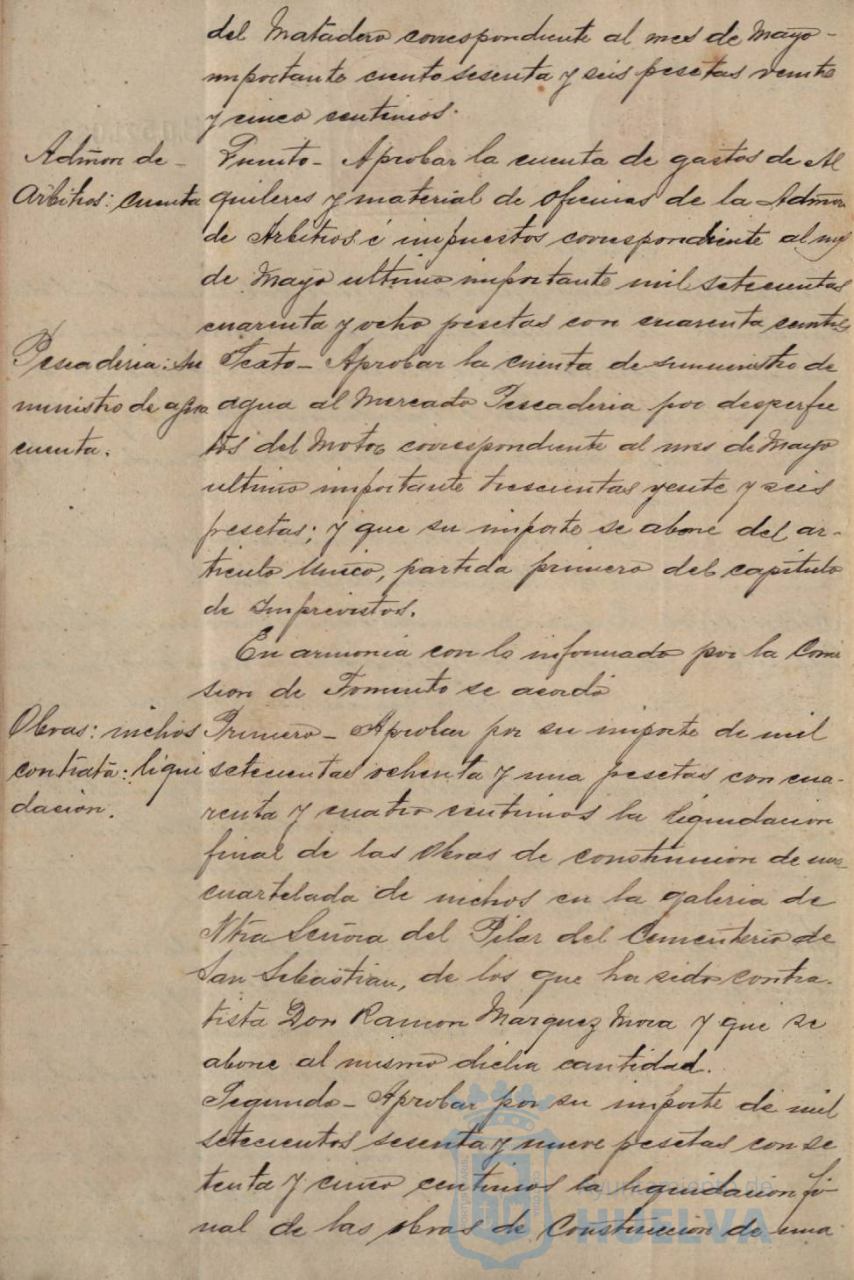 del Matadero correspondiente al mes de Mayo-
importante ciento sesenta y seis pesetas veinte
y cinco centimos.
Admon de-
Arbitrios: cuenta
Quinto- Aprobar la cuenta de gastos de Al
quileres y material de oficinas de la Admon
de Arbitrios é impuestos correspondiente al mes
de Mayo ultimo importante mil setecientas
cuarenta y ocho pesetas con cuarenta centos
Pescaderia: su
ministro de agua
cuenta.
Sexto- Aprobar la cuenta de suministro de
agua al Mercado Pescaderia por desperfec
tos del Motor correspondiente al mes de Mayo
ultimo importante trescientas veinte y seis
pesetas; y que su importe se abone del ar-
ticulo unico, partida primero del capitulo
de Imprevistos.
En armonia con lo informado por la Comi
sion de Fomento se acordó
Obras: nichos
contrata: liqui
dación.
Primero- Aprobar por su importe de mil
setecientas ochenta y una pesetas con cua-
renta y cuatro centimos la liquidacion
final de las obras de construccion de una
cuartelada de nichos en la galeria de
Ntra Señora del Pilar del Cementerio de
San Sebastian, de los que ha sido contra-
tista Don Ramon Marquez Mora y que se
abone al mismo dicha cantidad.
Segundo- Aprobar por su importe de mil
setecientos sesenta y nueve pesetas con se
tenta y cinco centimos la liquidacion fi
nal de las obras de construccion de una
Ayuntamiento de
HUELVA